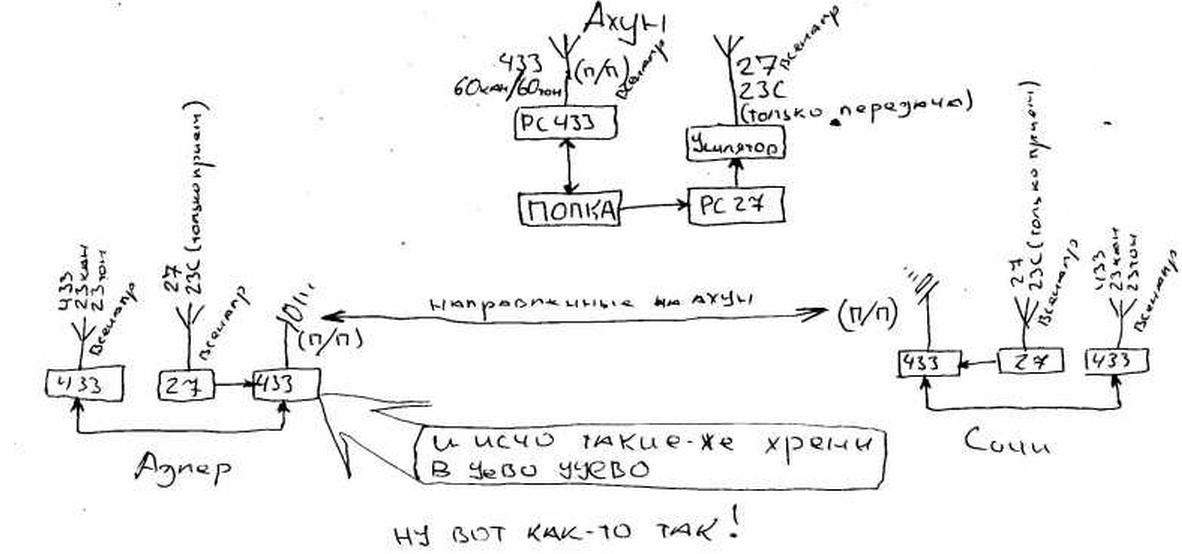 Ахун
433
60кан/60тон
(п/п)
всенапр
27
всенапр
23С
(только передача)
РС 433
Усилятор
ПОПКА
РС 27
433
23кан
23тон
Всенапр
27
23С (только прием)
Всенапр
(п/п)
направленные на Ахун
(п/п)
27
23С (только прием)
Всенапр
433
23кан
23тон
Всенапр
433
27
433
433
27
433
Адлер
Сочи
и исчо такие-же хрени
в
НУ ВОТ КАК-ТО ТАК!